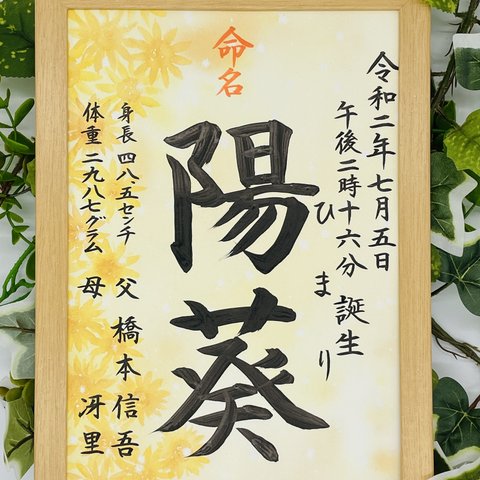 令和二年七月五日
午後二時十六分 誕生
ひまり
命名
陽葵
身長 四八.五センチ
体重 二九八七グラム
父 橋本信吾
母 冴里